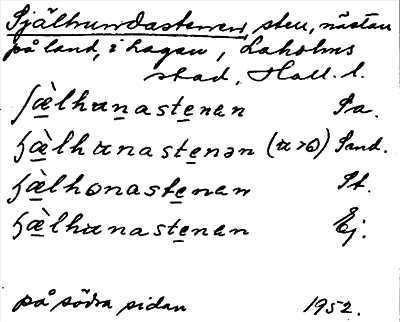 Själhundastenen, sten, nästan
på land, i Lagan, Laholms
stad, Hall. l.
ʃæ̀lhɑnastenen Pa.
ɧæ̀lhɑnastenən (ɑ>ɷ) Sand.
ɧæ̀lhɷnastenen St.
ɧæ̀lhɑnastenen Ej.
på södra sidan 1952.